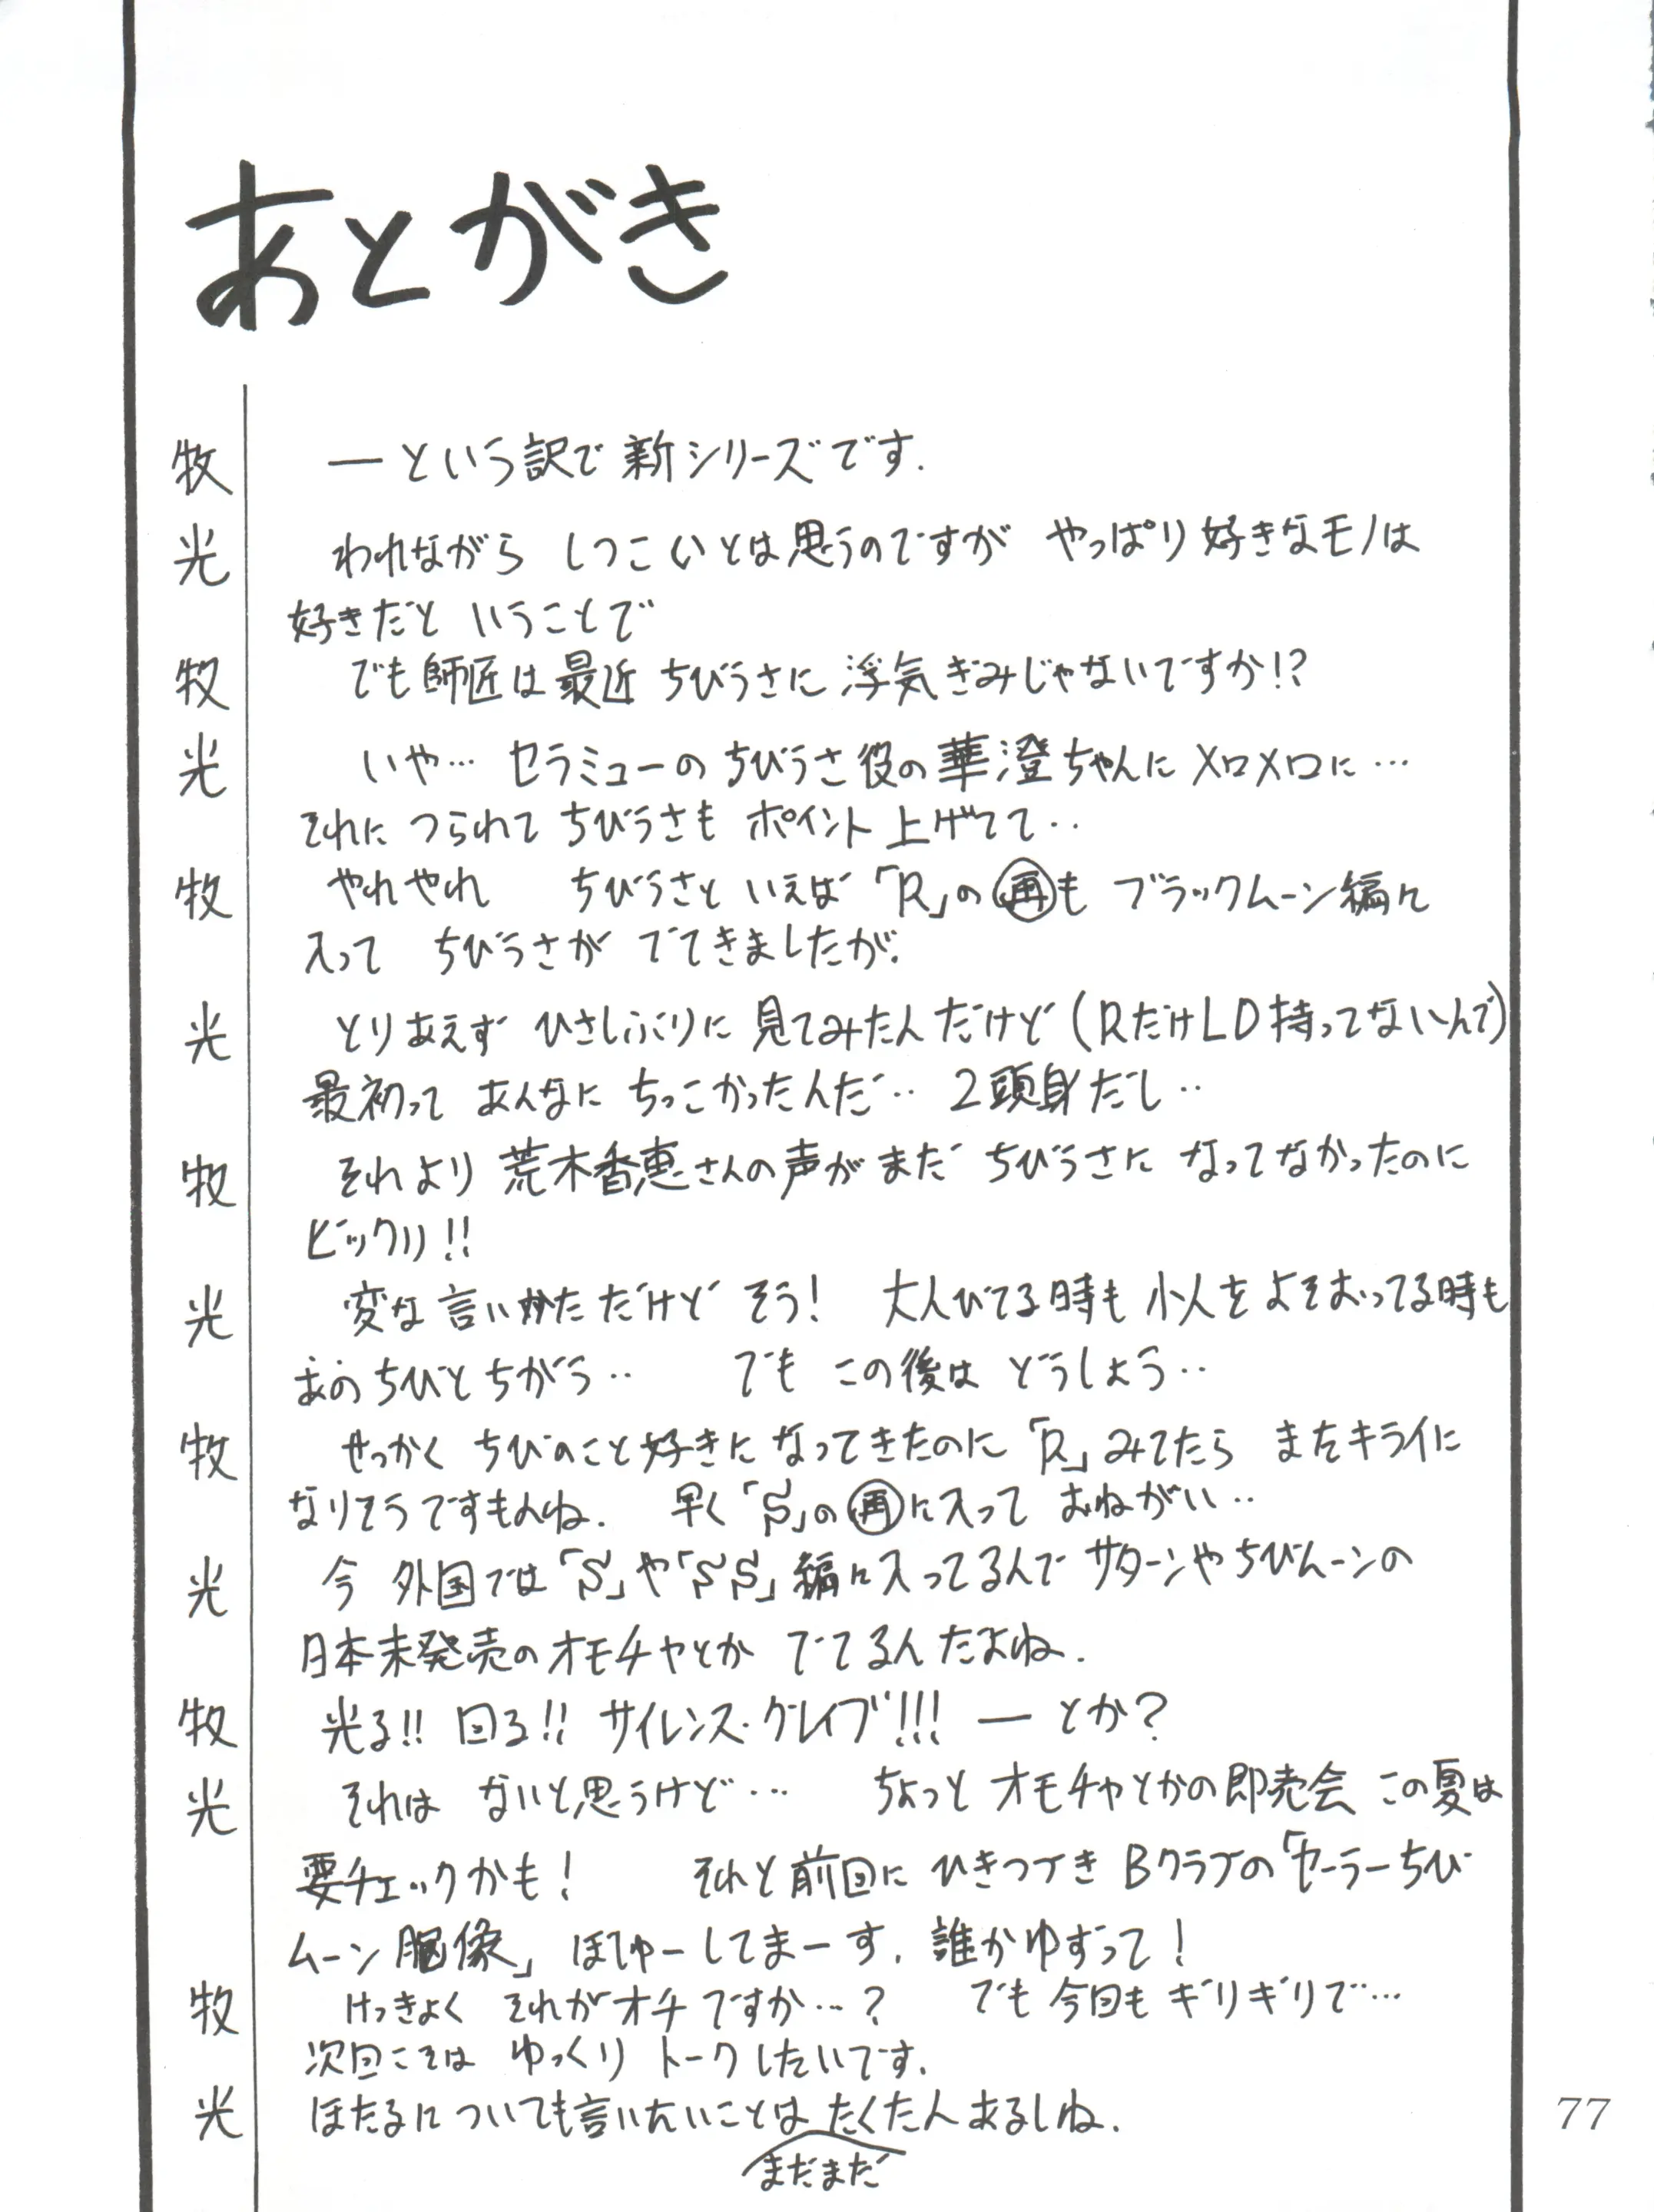 あとがき
牧 ―という訳で新シリーズです.
光 われながら しつこいとは思うのですが やっぱり好きなモノは
好きだと いうことで
牧 でも師匠は最近 ちびうさに浮気ぎみじゃないですか!?
光 いや… セラミューのちびうさ役の華澄ちゃんにメロメロに…
それに つられて ちびうさも ポイント上げてて‥
牧 やれやれ ちびうさと いえば「R」の㊥も ブラックムーン編に
入って ちびうさが でてきましたが.
光 とりあえず ひさしぶりに 見てみたんだけど(RだけLD持ってないんで)
最初って あんなに ちっこかったんだ‥ 2頭身だし‥
牧 それより 荒木香恵さんの声がまだ ちびうさに なってなかったのに
ビックリ!!
光 変な言いかただけど そう! 大人びてる時も 小人をよそおってる時も
あのちびとちがう‥ でも この後は どうしよう‥
牧 せっかく ちびのこと好きに なってきたのに「R」みてたら またキライに
なりそうですもんね. 早く「S」の再に入って おねがい‥
光 今 外国では「S」や「SS」編に入ってるんで サターンやちびムーンの
日本未発売のオモチャとか でてるんだよね.
牧 光る!! 回る!! サイレンス・グレイブ!!! ― とか?
光 それは ないと思うけど… ちょっと オモチャとかの即売会 この夏は
要チェックかも! それと前回に ひきつづき Bクラブの「セーラーちび
ムーン胸像」ほしゅーしてまーす. 誰かゆずって!
牧 けっきょく それがオチですか…? でも 今回も ギリギリで…
次回こそは ゆっくり トークしたいです.
光 ほたるに ついても言いたいことは たくたん あるしね.
まだまだ
77